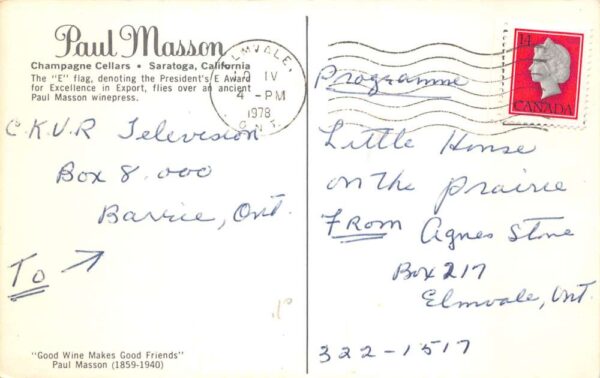 Paul Masson
Champagne Cellars • Saratoga, California
The "E" flag, denoting the President's E Award
for Excellence in Export, flies over an ancient
Paul Masson winepress.
ELMVALE,
10 IV
4 -PM
1978
ONT.
14
CANADA
C.K.V.R Television
Box 8.000
Barrie, Ont.
To
"Good Wine Makes Good Friends"
Paul Masson (1859-1940)
Programme
Little House
on the prairie
From Agnes Stone
Box 217
Elmvale, Ont.
322-1517